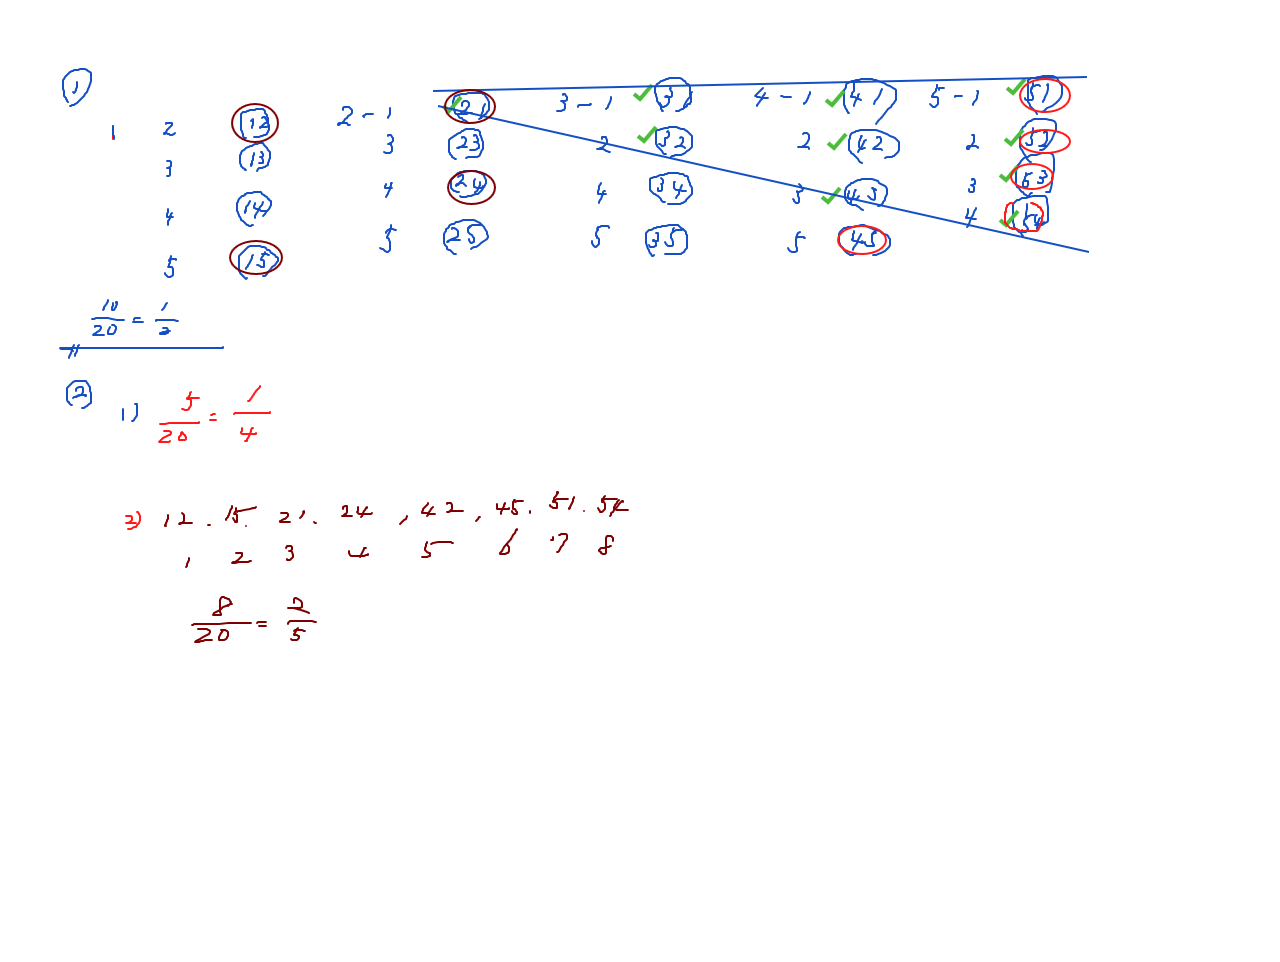 ①
1 2 12 2-1 21 3-1 31 4-1 41 5-1 51
3 13 3 23 2 32 2 42 2 52
4 14 4 24 4 34 3 43 3 53
5 15 5 25 5 35 5 45 4 54
10/20 = 1/2
②
1) 5/20 = 1/4
2) 12 . 15 . 21 . 24 , 42 , 45 . 51 . 54
1 2 3 4 5 6 7 8
8/20 = 2/5